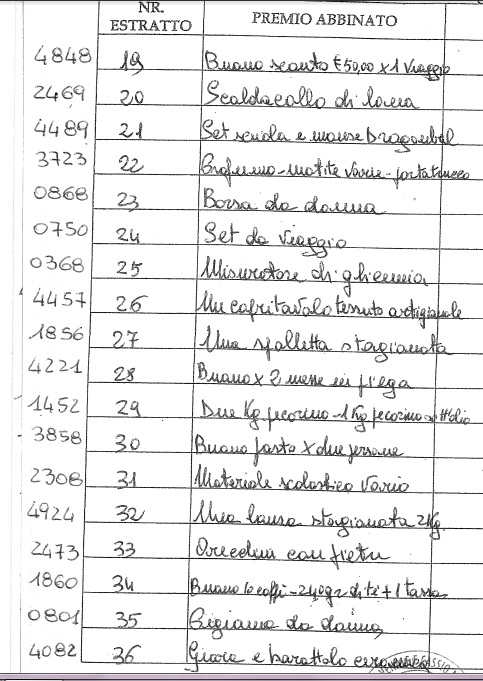 NR. ESTRATTO PREMIO ABBINATO
4848 19 Buono sconto €50,00 x 1 Viaggio
2469 20 Scaldacollo di lana
4489 21 Set scuola e mouse Dragonball
3723 22 Profumo - matite varie - portatrucco
0868 23 Borsa da donna
0750 24 Set da Viaggio
0368 25 Misuratore di glicemia
4457 26 Un copritavolo tessuto artigianale
1856 27 Una spalletta stagionata
4221 28 Buono x 2 messe in piega
1452 29 Due Kg pecorino - 1 Kg pecorino sott'olio
3858 30 Buono pasto x due persone
2308 31 Materiale scolastico Vario
4924 32 Una lonza stagionata 2 Kg.
2473 33 Orecchini con pietre
1860 34 Buono 10 caffè - 240gr di tè + 1 tazza
0801 35 Pigiama da donna
4082 36 Giacca e barattolo